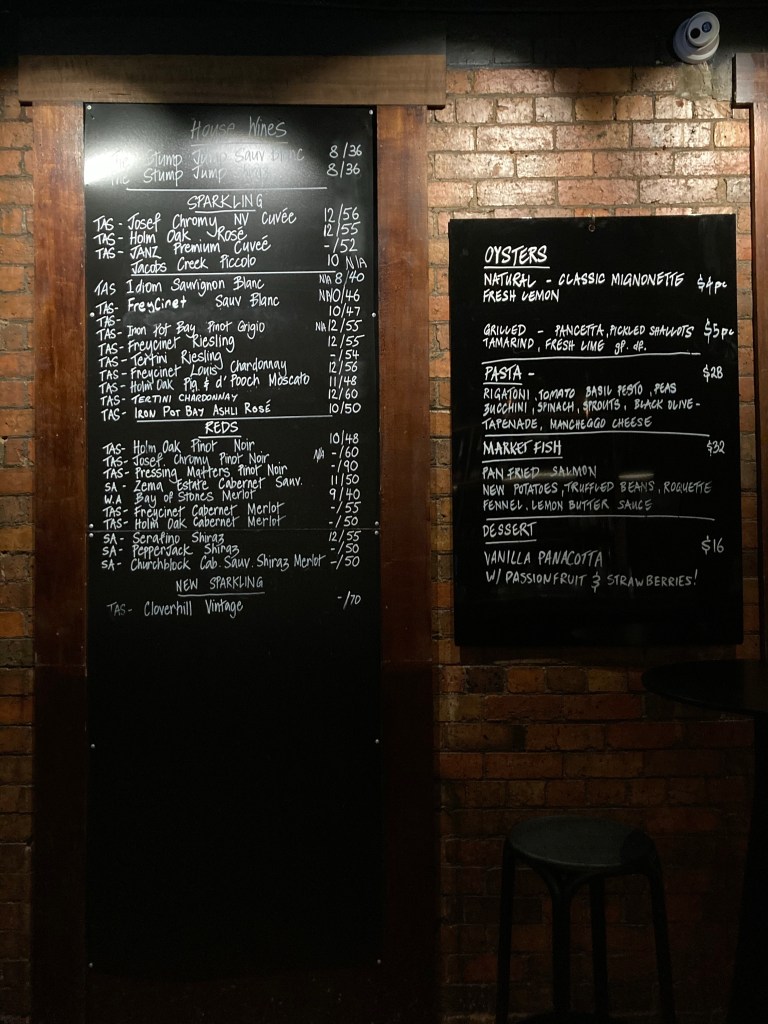 House Wines
Stump Jump Sauv Blanc 8/36
The Stump Jump 8/36
SPARKLING
TAS - Josef Chromy NV Cuvée 12/56
TAS - Holm Oak Rosé 12/55
TAS - JANZ Premium Cuveé -/52
Jacobs Creek Piccolo 10 N/A
TAS Idiom Sauvignon Blanc N/A 8/40
TAS - Freycinet Sauv Blanc 10/46
TAS - 10/47
TAS - Iron Pot Bay Pinot Grigio N/A 12/55
TAS - Freycinet Riesling 12/55
TAS - Tertini Riesling -/54
TAS - Freycinet Louis Chardonnay 12/56
TAS - Holm Oak Pig & d' Pooch Moscato 11/48
TAS - TERTINI CHARDONNAY 12/60
TAS - IRON POT BAY ASHLI ROSÉ 10/50
REDS
TAS - Holm Oak Pinot Noir 10/48
TAS - Josef Chromy Pinot Noir N/A -/60
TAS - Pressing Matters Pinot Noir -/90
SA - Zema Estate Cabernet Sauv. 11/50
W.A Bay of Stones Merlot 9/40
TAS - Freycinet Cabernet Merlot -/55
TAS - Holm Oak Cabernet Merlot -/50
SA - Serafino Shiraz 12/55
SA - PepperJack Shiraz -/50
SA - Churchblock Cab. Sauv. Shiraz Merlot -/50
NEW SPARKLING
TAS - Cloverhill Vintage -/70
OYSTERS
NATURAL - CLASSIC MIGNONETTE $4pc
FRESH LEMON
GRILLED - PANCETTA, PICKLED SHALLOTS $5pc
TAMARIND, FRESH LIME gf. df.
PASTA - $28
RIGATONI, TOMATO BASIL PESTO, PEAS
ZUCCHINI, SPINACH, SPROUTS, BLACK OLIVE -
TAPENADE, MANCHEGGO CHEESE
MARKET FISH $32
PAN FRIED SALMON
NEW POTATOES, TRUFFLED BEANS, ROQUETTE
FENNEL, LEMON BUTTER SAUCE
DESSERT
$16
VANILLA PANACOTTA
W/ PASSIONFRUIT & STRAWBERRIES!